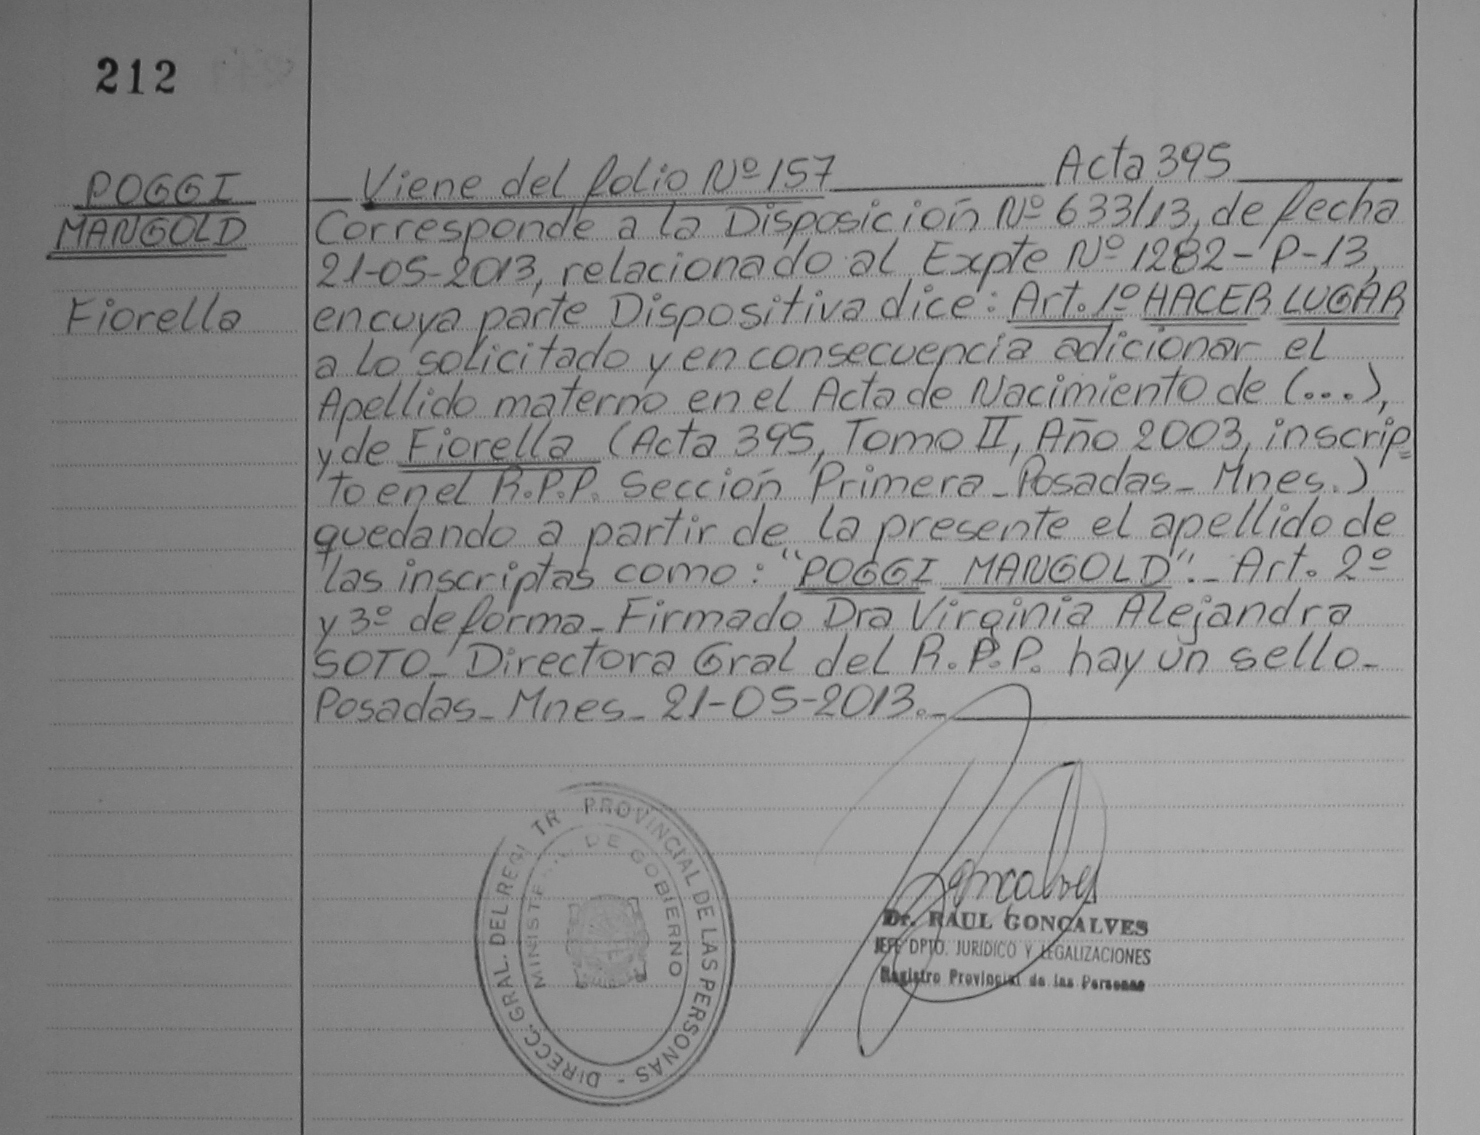 212
POGGI
MANGOLD
Fiorella
Viene del folio Nº 157 Acta 395
Corresponde a la Disposición Nº 633/13, de fecha
21-05-2013, relacionado al Expte Nº 1282-P-13,
en cuya parte Dispositiva dice: Art. 1º HACER LUGAR
a lo solicitado y en consecuencia adicionar el
Apellido materno en el Acta de Nacimiento de (...),
y de Fiorella (Acta 395, Tomo II, Año 2003, inscrip=
to en el R.P.P. Sección Primera - Posadas - Mnes.)
quedando a partir de la presente el apellido de
las inscriptas como: "POGGI MANGOLD".- Art. 2º
y 3º de forma - Firmado Dra Virginia Alejandra
SOTO - Directora Gral del R.P.P. hay un sello -
Posadas - Mnes - 21-05-2013.-
DIRECC. GRAL. DEL REGI TR PROVINCIAL DE LAS PERSONAS -
MINISTE DE GOBIERNO
Goncalves
Dr. RAUL GONÇALVES
JEFE DPTO. JURIDICO Y LEGALIZACIONES
Registro Provincial de las Personas